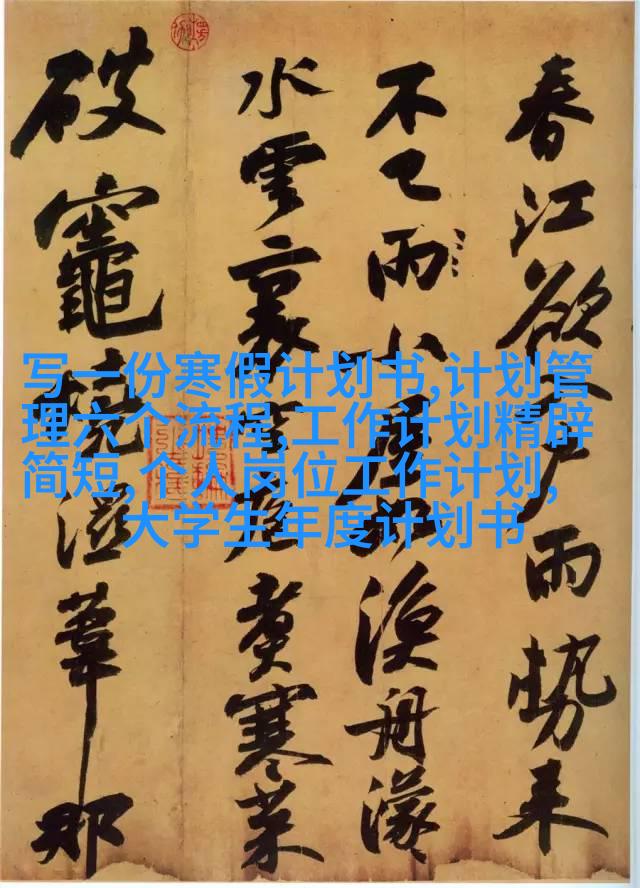 春江欲入戶雨勢來
不已雨小屋如漁舟濛
水雲裏空庖煮寒菜
破竈燒濕葦那
写一份寒假计划书,计划管
理六个流程,工作计划精辟
简短,个人岗位工作计划,
大学生年度计划书